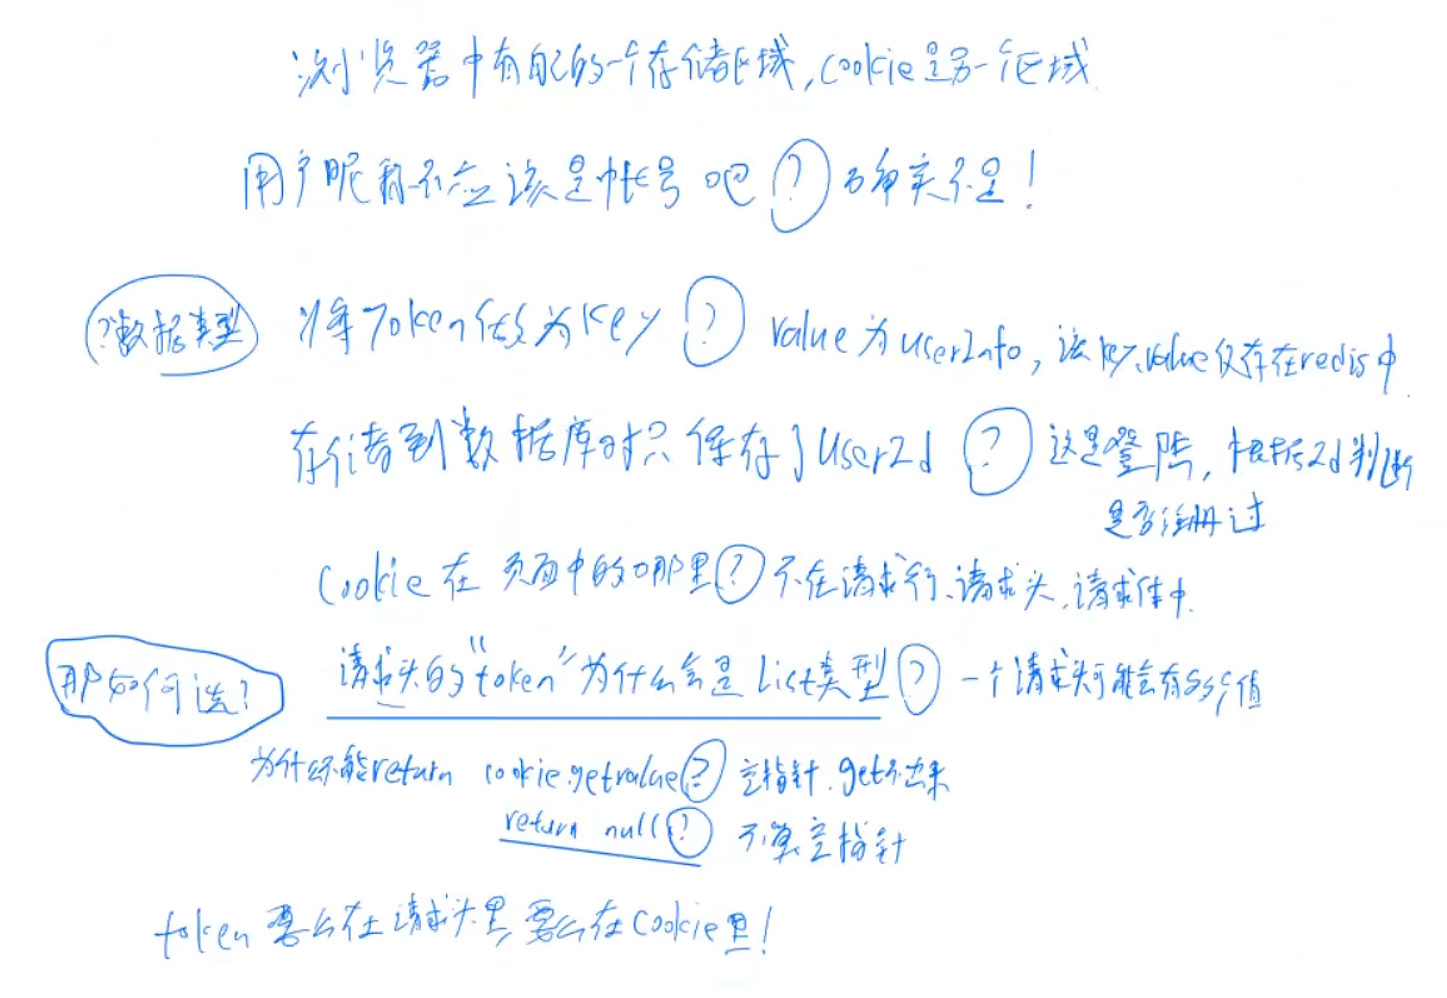 浏览器中有自己的一个存储区域,cookie是另一个区域
用户昵称不应该是帐号吧?确实不是!
?数据类型
将Token作为key?value为userInfo,该key,value仅存在redis中
存储到数据库时只保存了userId?这是登陆,根据Id判断
是否注册过
Cookie在页面中的哪里?不在请求行、请求头、请求体中
那如何选?
请求头的"token"为什么会是List类型?一个请求头可能会有多个值
为什么不能return cookie.getvalue?空指针.get不出来
return null?不算空指针
token要么在请求头里,要么在Cookie里!